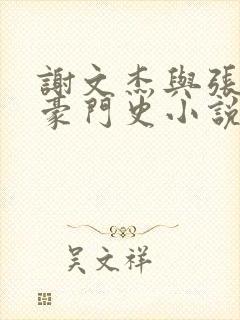 謝文杰與張
豪門史小說
吳文祥